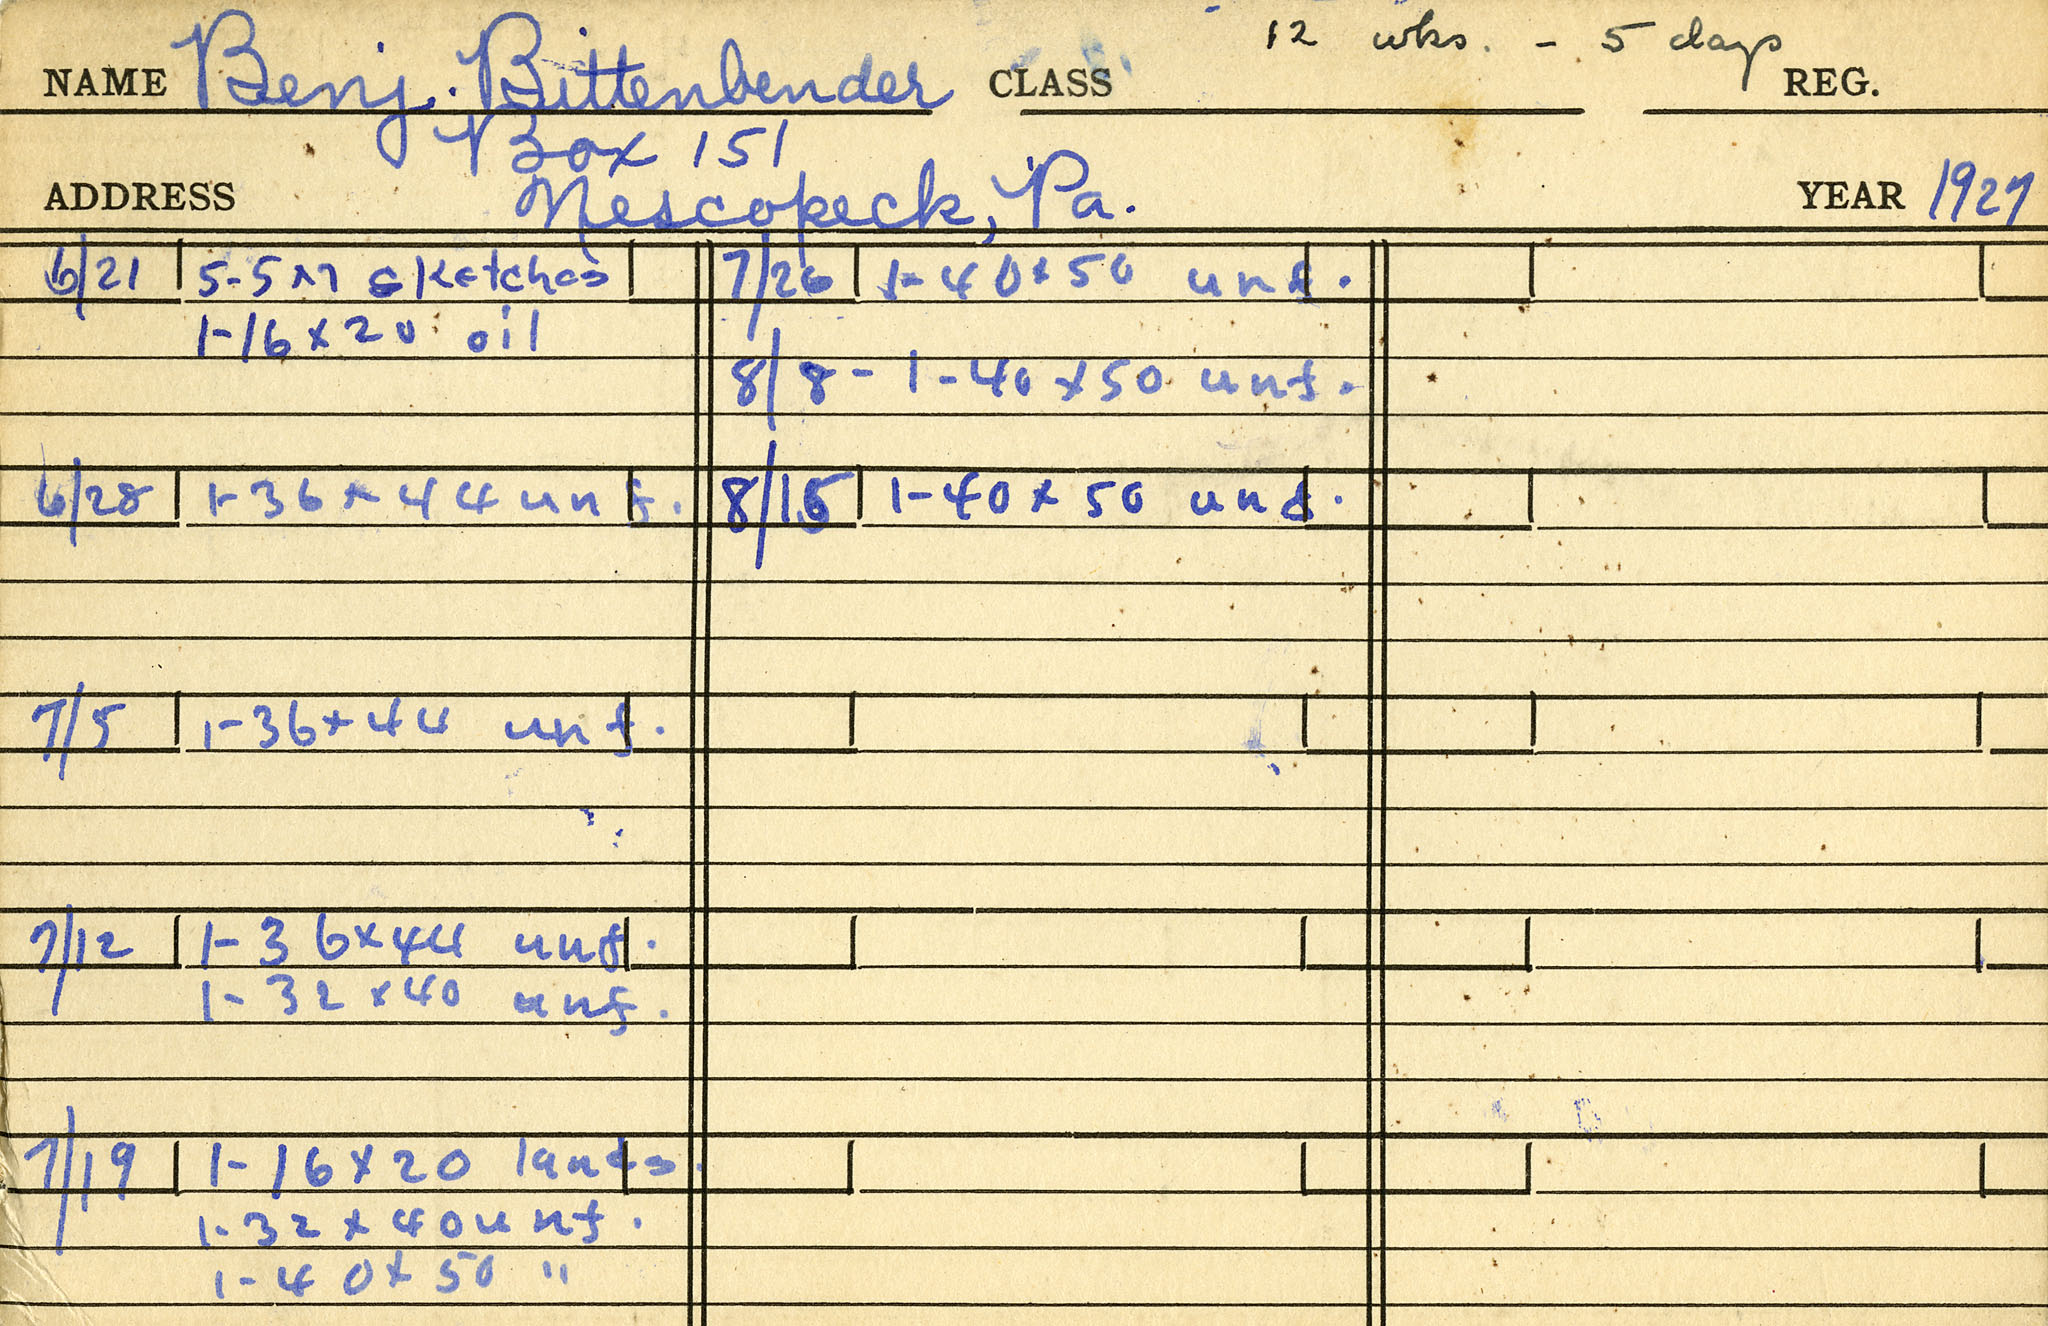 12 wks. - 5 days
NAME Benj. Bittenbender CLASS REG.
Box 151
ADDRESS Nescopeck, Pa. YEAR 1927
6/21 5-5 sketches
1-16x20 oil
6/28 1-36x44 unf.
7/5 1-36x44 unf.
7/12 1-36x44 unf.
1-32x40 unf.
7/19 1-16x20 lands.
1-32x40 unf.
1-40x50 "
7/26 1-40x50 unf.
8/8 - 1-40x50 unf.
8/15 1-40x50 unf.